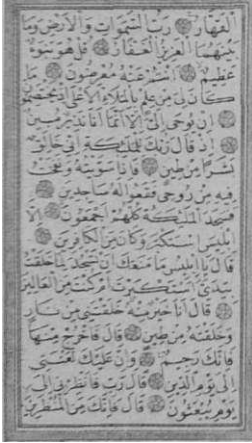 الْقَهَّارُ رَبُّ السَّمَوَاتِ وَالْأَرْضِ وَمَا
بَيْنَهُمَا الْعَزِيزُ الْغَفَّارُ قُلْ هُوَ نَبَؤٌا
عَظِيمٌ أَنْتُمْ عَنْهُ مُعْرِضُونَ مَا
كَانَ لِيَ مِنْ عِلْمٍ بِالْمَلَاءِ الْأَعْلَى إِذْ يَخْتَصِمُونَ
إِنْ يُوحَى إِلَيَّ إِلَّا أَنَّمَا أَنَا نَذِيرٌ مُبِينٌ
إِذْ قَالَ رَبُّكَ لِلْمَلَئِكَةِ إِنِّي خَالِقٌ
بَشَرًا مِنْ طِينٍ فَإِذَا سَوَّيْتُهُ وَنَفَخْتُ
فِيهِ مِنْ رُوحِي فَقَعُوا لَهُ سَاجِدِينَ
فَسَجَدَ الْمَلَئِكَةُ كُلُّهُمْ أَجْمَعُونَ إِلَّا
إِبْلِيسَ اسْتَكْبَرَ وَكَانَ مِنَ الْكَافِرِينَ
قَالَ يَا إِبْلِيسُ مَا مَنَعَكَ أَنْ تَسْجُدَ لِمَا خَلَقْتُ
بِيَدَيَّ أَسْتَكْبَرْتَ أَمْ كُنْتَ مِنَ الْعَالِينَ
قَالَ أَنَا خَيْرٌ مِنْهُ خَلَقْتَنِي مِنْ نَارٍ
وَخَلَقْتَهُ مِنْ طِينٍ قَالَ فَاخْرُجْ مِنْهَا
فَإِنَّكَ رَجِيمٌ وَإِنَّ عَلَيْكَ لَعْنَتِي
إِلَى يَوْمِ الدِّينِ قَالَ رَبِّ فَأَنْظِرْنِي إِلَى
يَوْمِ يُبْعَثُونَ قَالَ فَإِنَّكَ مِنَ الْمُنْظَرِينَ